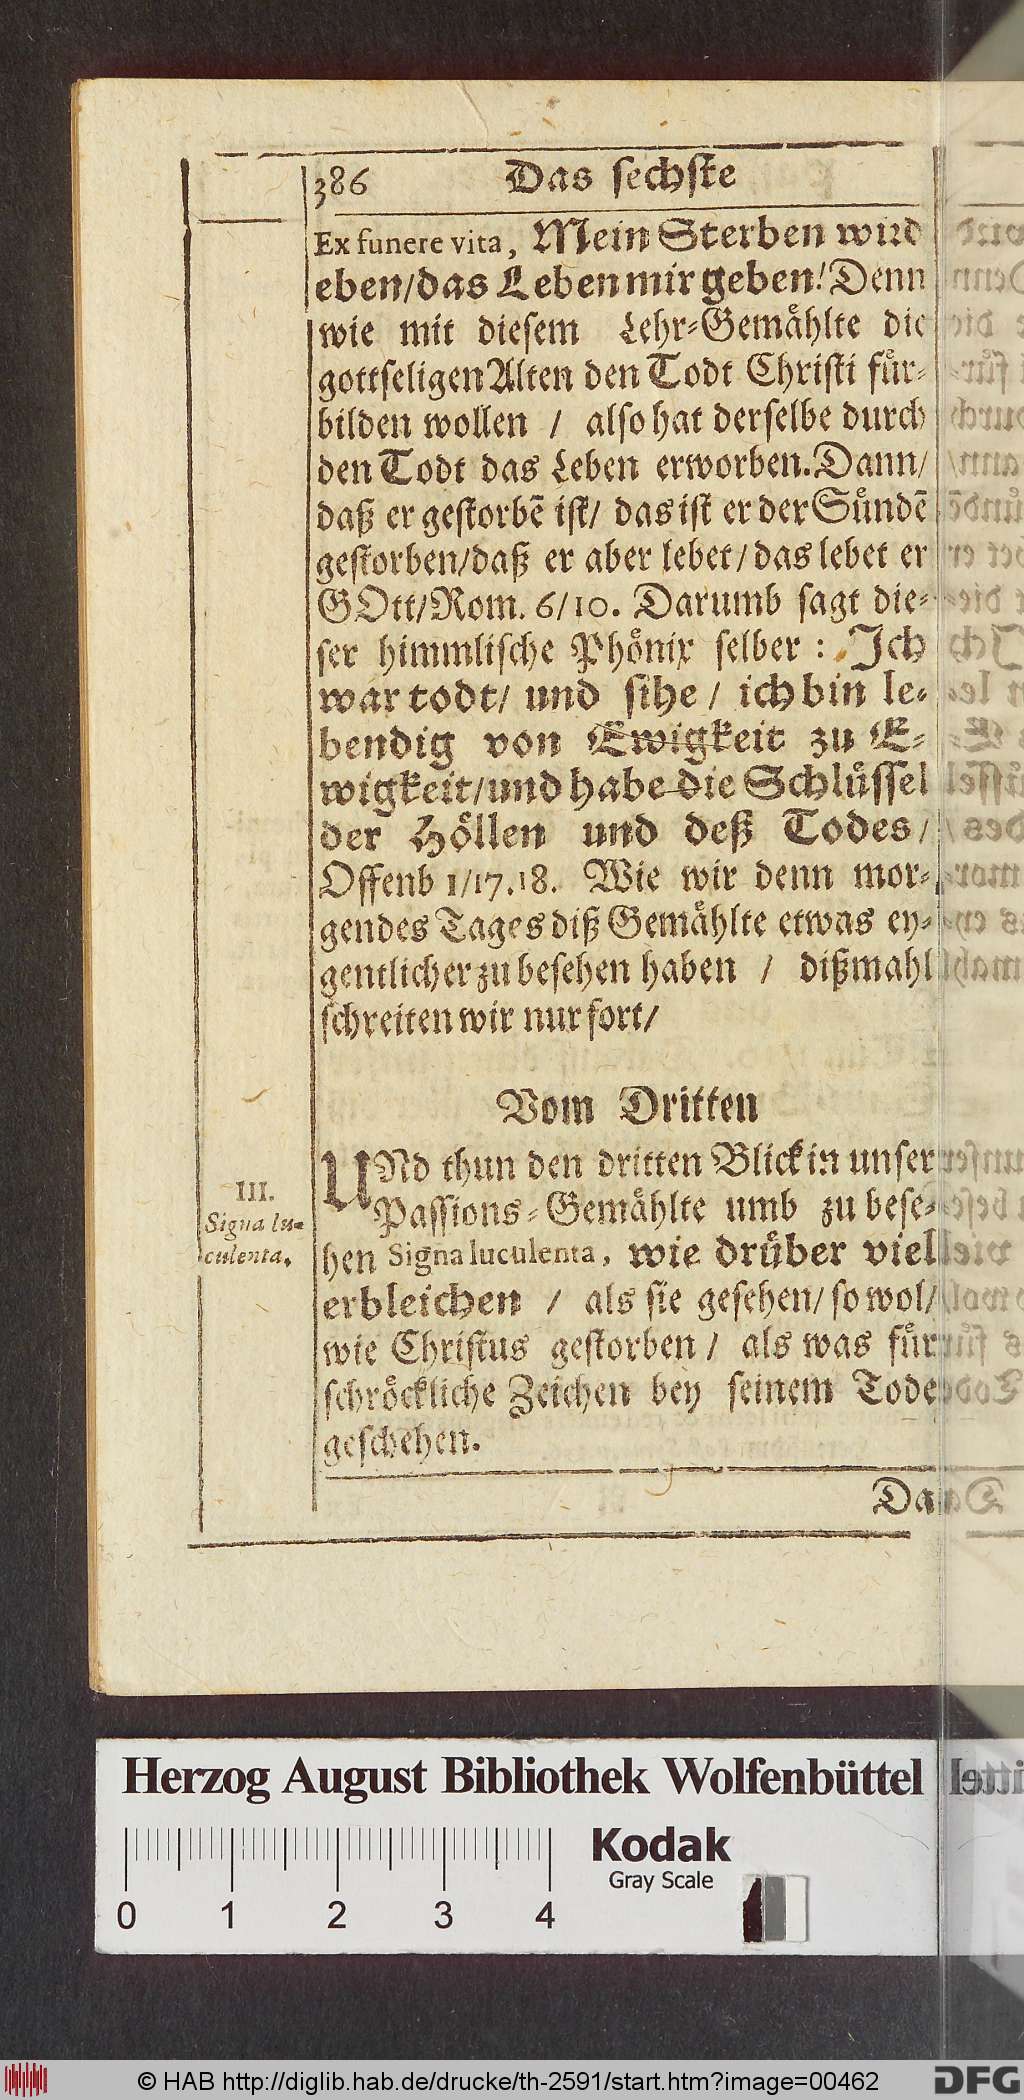 386 Das sechste
Ex funere vita, Mein Sterben wird
eben/das Leben mir geben! Denn
wie mit diesem Lehr-Gemählte die
gottseligen Alten den Todt Christi für-
bilden wollen / also hat derselbe durch
den Todt das Leben erworben. Dann/
daß er gestorbẽ ist/ das ist er der Sündẽ
gestorben/daß er aber lebet/das lebet er
GOtt/Rom. 6/10. Darumb sagt die-
ser himmlische Phönix selber : Ich
war todt/ und sihe / ich bin le-
bendig von Ewigkeit zu E-
wigkeit/und habe die Schlüssel
der Höllen und deß Todes/
Offenb 1/17.18. Wie wir denn mor-
gendes Tages diß Gemählte etwas ey-
gentlicher zu besehen haben / dißmahl
schreiten wir nur fort/
Vom Dritten
UNd thun den dritten Blick in unser
Passions-Gemählte umb zu bese-
hen Signa luculenta, wie drüber viel
erbleichen / als sie gesehen/ so wol/
wie Christus gestorben / als was für
schröckliche Zeichen bey seinem Tode
geschehen.
III.
Signa lu-
culenta.
Da
Herzog August Bibliothek Wolfenbüttel
Kodak
Gray Scale
0 1 2 3 4
© HAB http://diglib.hab.de/drucke/th-2591/start.htm?image=00462
DFG